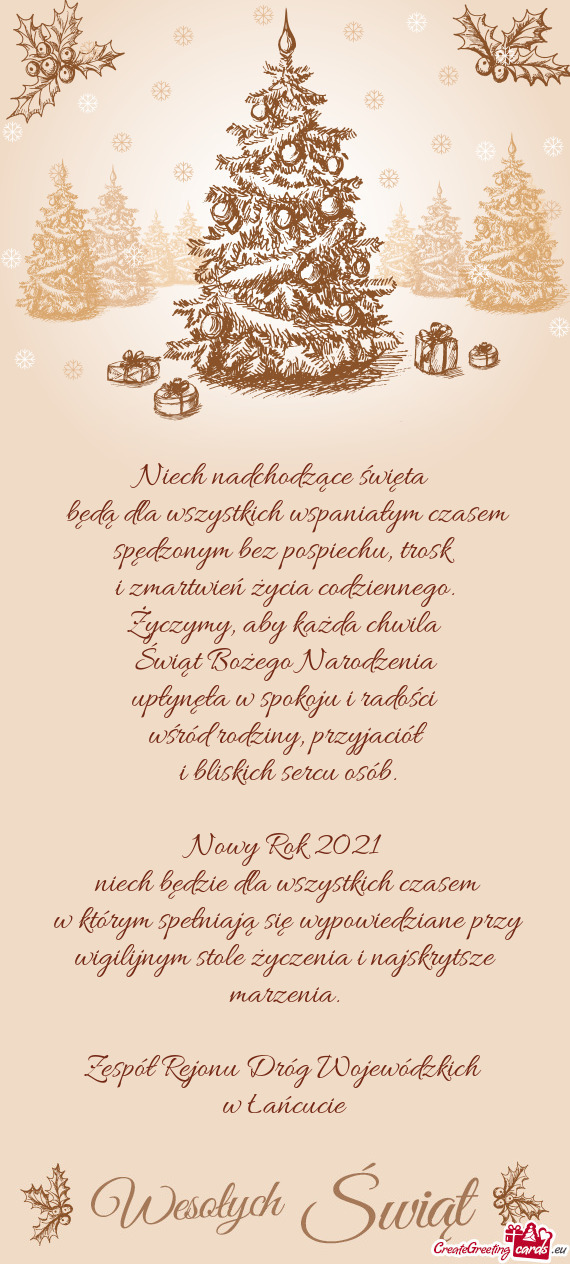 Niech nadchodzące święta
będą dla wszystkich wspaniałym czasem
spędzonym bez pospiechu, trosk
i zmartwień życia codziennego.
Życzymy, aby każda chwila
Świąt Bożego Narodzenia
upłynęła w spokoju i radości
wśród rodziny, przyjaciół
i bliskich sercu osób.
Nowy Rok 2021
niech będzie dla wszystkich czasem
w którym spełniają się wypowiedziane przy
wigilijnym stole życzenia i najskrytsze
marzenia.
Zespół Rejonu Dróg Wojewódzkich
w Łańcucie
Wesołych Świąt
CreateGreetingcards.eu